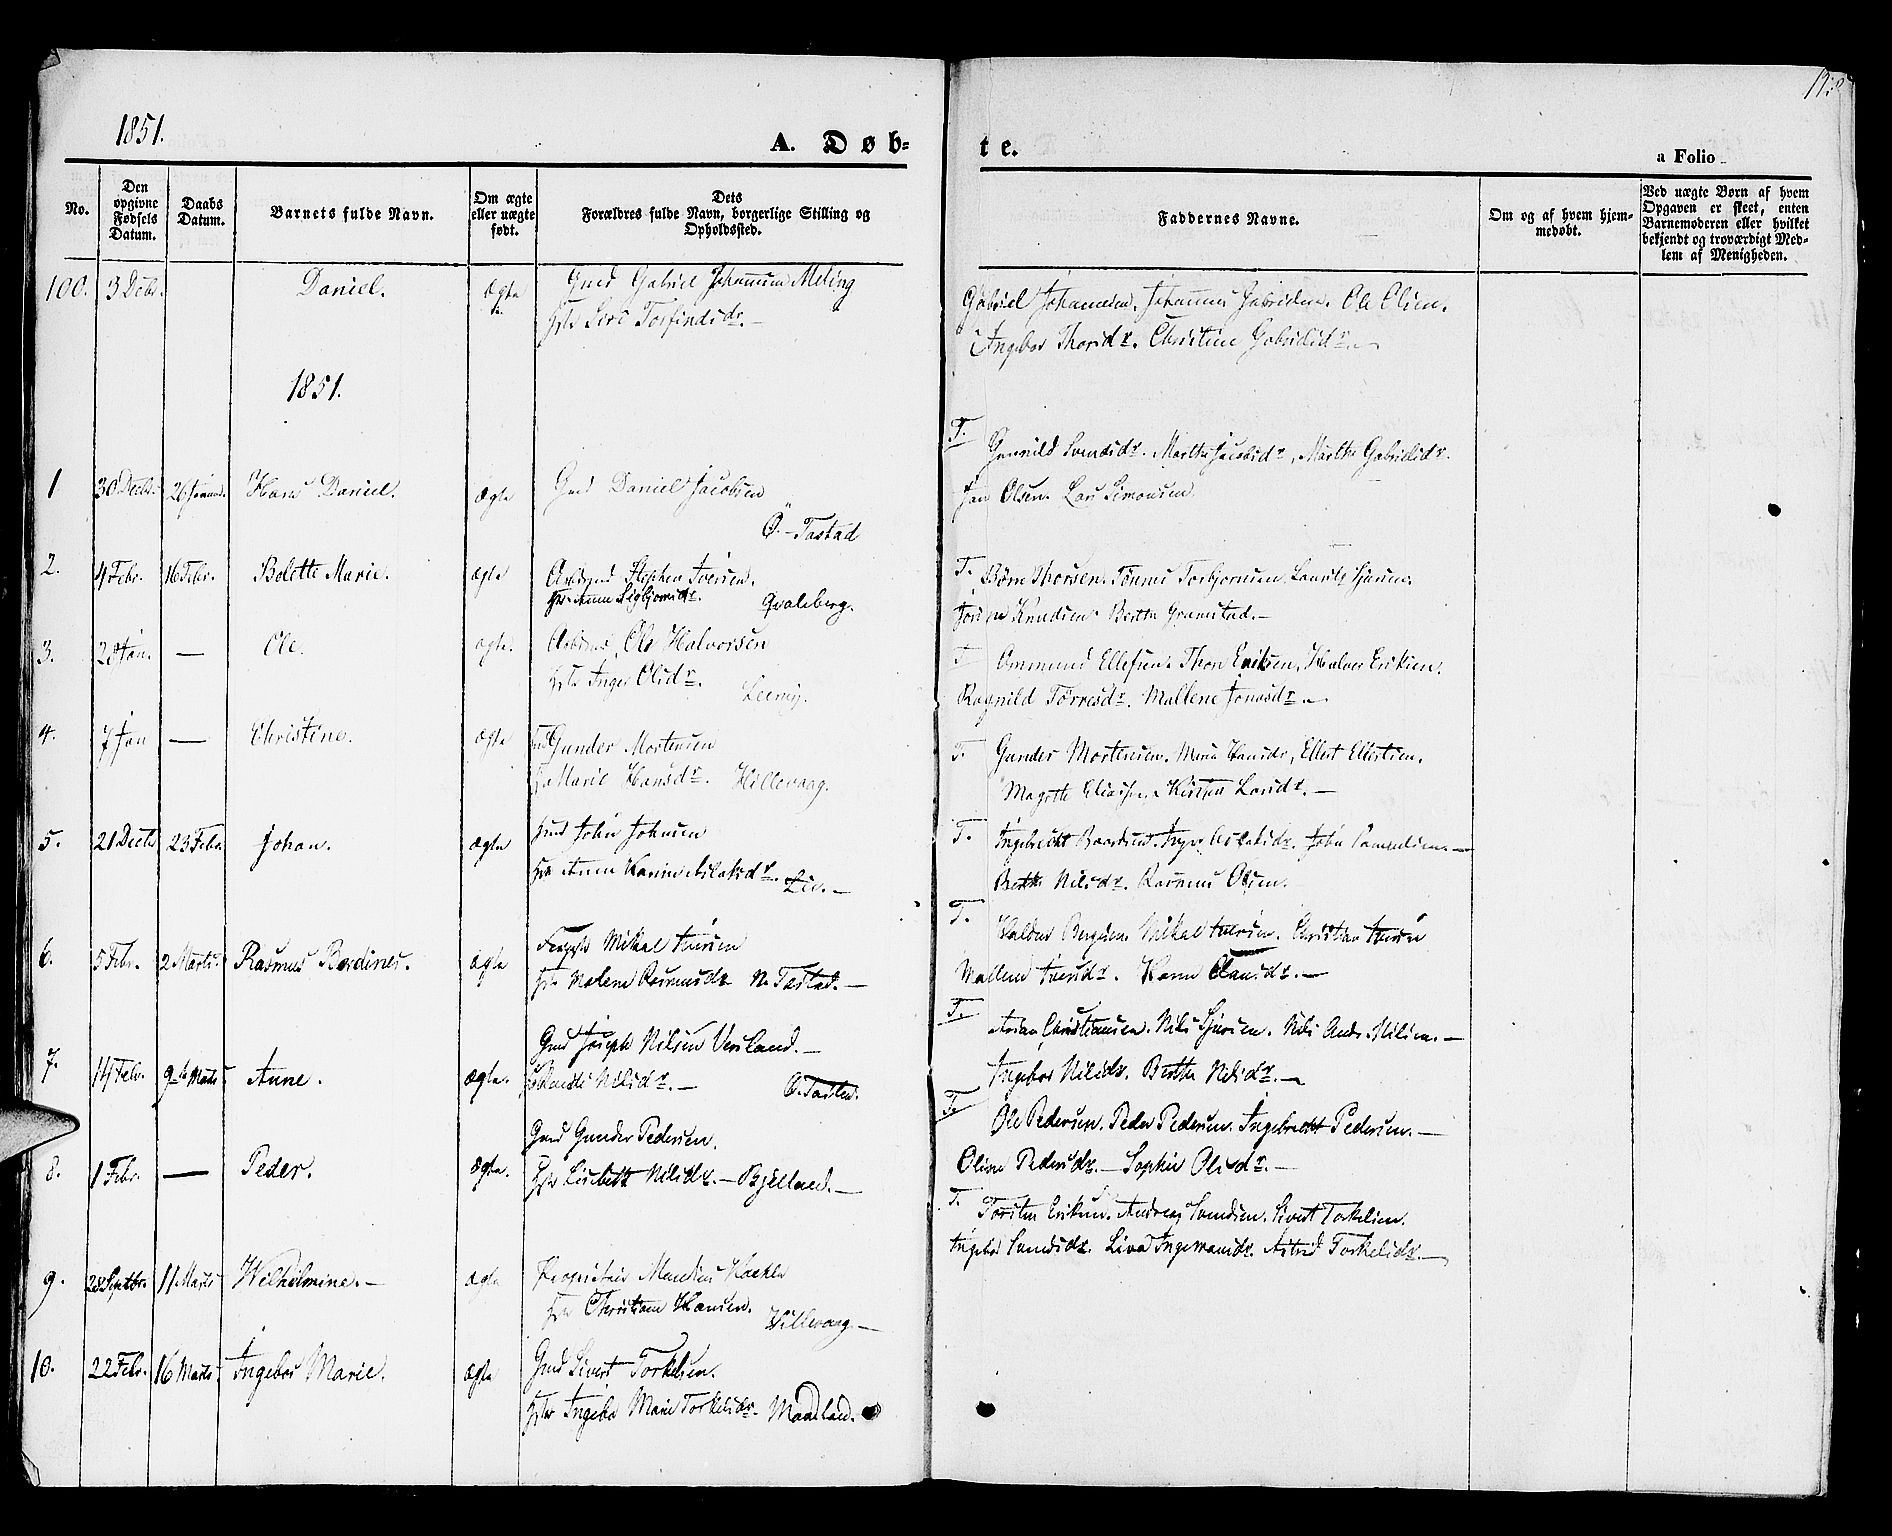 1851.
A. Døb-
te.
a Folio
No.
Den opgivne Fødsels Datum.
Daabs Datum.
Barnets fulde Navn.
Om ægte eller uægte født.
Dets Forældres fulde Navn, borgerlige Stilling og Opholdssted.
Faddernes Navne.
Om og af hvem hjemmedøbt.
Ved uægte Børn af hvem Opgaven er skeet, enten Barnemoderen eller hvilket bekjendt og troværdigt Medlem af Menigheden.
100. 3 Debr. Daniel. Ægte Gmd Gabriel Johannesen Meling
Siri Torfindsdr. —
Gabriel Johannesen. Johannes Gabrielsen. Ole Olsen.
Ingebor Thorsdr. Christine Gabrielsdr.
1851.
1 30 Decbr. 26 Januar. Hans Daniel. Ægte Gmd Daniel Jacobsen
Ø. Tastad
T. Gunnild Svendsdr. Marthe Jacobsdr, Marthe Gabrielsdr.
Jan Olsen. Lars Simonsen.
2. 4 Febr. 16 Febr. Bolette Marie. Ægte Stephen Iversen.
Anne Sigbjørnsdr. Qvaleberg.
T. Børre Thorsen. Tønnes Torbjørnsen. Lauritz
Knudsen. Berthe Gramstad. —
3. 28 Jan. — Ole. ægte. Ole Halvorsen
Inger Olsdr.
T. Ommund Ellefsen. Thor Eriksen, Halvor Eriksen.
Ragnild Tørresdr. Mallene Jonasdr.
4. 7 Jan — Christine. ægte Gunder Mortensen
Marie Hansdr. Hillevaag.
T. Gunder Mortensen. Maria Hansdr, Ellert Ellertsen.
Magrethe Kirsten Larsdr. —
5. 21 Decbr 23 Febr. Johan. ægte Gmd John Johnsen
Anne Karine Aslaksdr. —
T. Ingebrecht Baardsen. John —
Berthe Nilsdr. Rasmus Olsen.
6. 5 Febr. 2 Marts. Rasmus Berdines. ægte Mikal Iversen
Malene Rasmusdr N. Tastad. —
T. Mikal Iversen. Christian Iversen
Mallene Iversdr. Hanne —
7. 14 Febr. 9de Marts Anne. ægte. Gmd Joseph Nilsen Versland. —
Nilsdr. — Ø. Tasted.
T. Christiansen. Nils Sjursen. Nils Andr. Nilsen. —
Ingebor Nilsdr. Berthe Nilsdr. —
8. 1 Febr. — Peder. ægte. Gmd Gunder Pedersen.
Lisebeth Nilsdr. — Bjelland. —
T. Ole Pedersen. Peder Pedersen. Ingebrecht Pedersen. —
Oline Pedersdr. — Sophie Olsdr. —
9. 28 Septbr. 11 Marts Wilhelmine. — ægte Proprietair
Hansen. Hillevaag —
T. Torsten Eriksen. Andreas Svendsen. Sivert Torkelsen.
Ingebor Svendsdr. Astrid Torkelsdr. —
10. 22 Febr. 16 Marts Ingebor Marie. ægte Gmd Sivert Torkelsen.
Ingebor Marie Torkelsdr. Madeland.